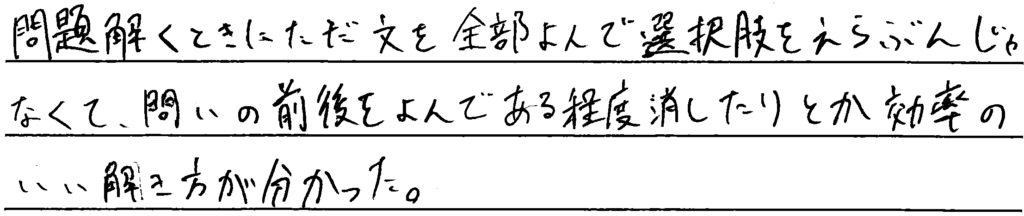 問題解くときにただ文を全部よんで選択肢をえらぶんじゃ
なくて、問いの前後をよんである程度消したりとか効率の
いい解き方が分かった。